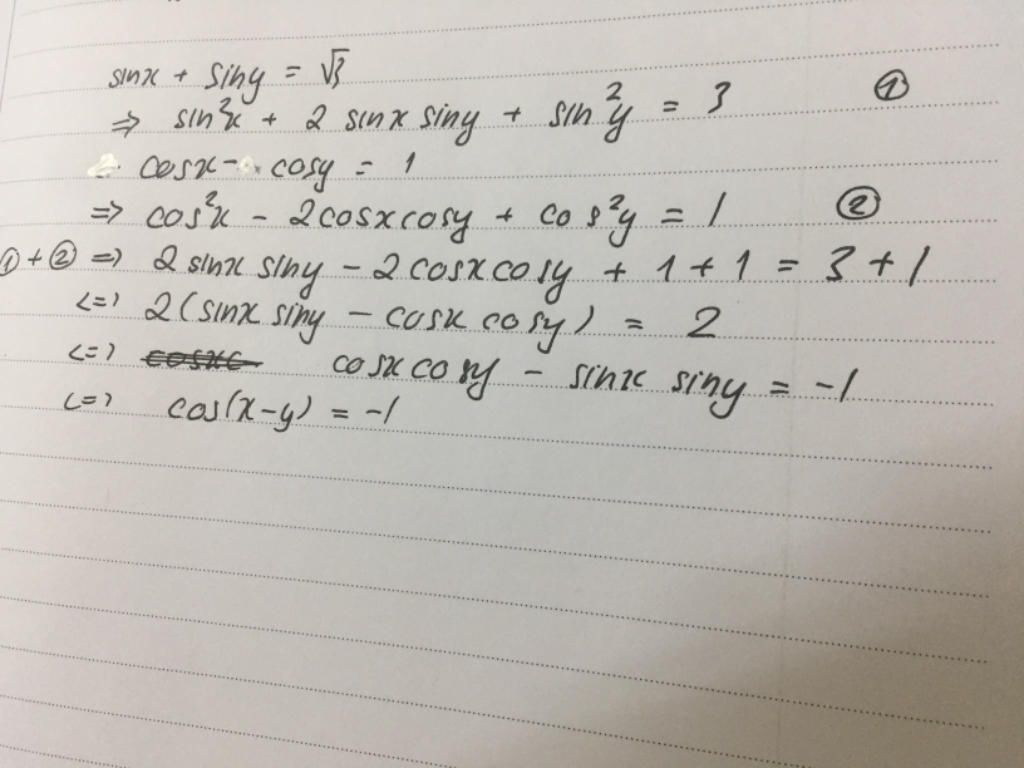 sinx + siny = √3
⇒ sin²x + 2 sinx siny + sin²y = 3 ①
cosx - cosy = 1
⇒ cos²x - 2cosxcosy + cos²y = 1 ②
①+② ⇒ 2 sinx siny - 2cosxcosy + 1+1 = 3+1
<=> 2(sinx siny - cosx cosy) = 2
<=> cosxc cosx cosy - sinx siny = -1
<=> cos(x-y) = -1